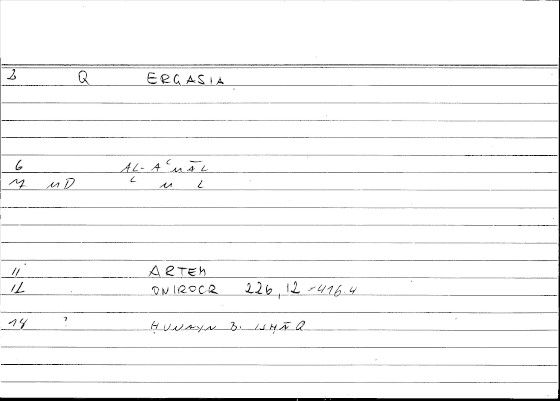 3 Q ERGASIA
6 AL-AʿMĀL
7 MD ʿ M L
11 ARTEM
12 ONIROCR 226,12 = 416.4
14 ? ḤUNAYN B. ISḤĀQ